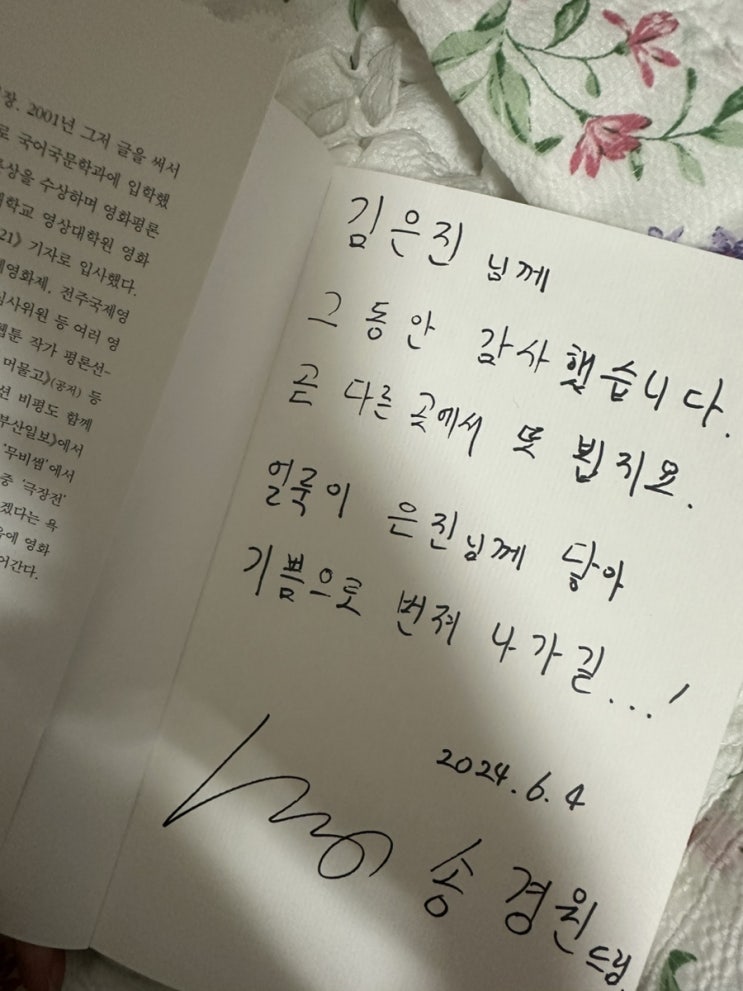 장. 2001년 그저 글을 써서
로 국어국문학과에 입학했
상을 수상하며 영화평론
학교 영상대학원 영화
21》 기자로 입사했다.
영화제, 전주국제영
심사위원 등 여러 영
웹툰 작가 평론선-
머물고》(공저) 등
선 비평도 함께
부산일보》에서
'무비썸'에서
중 '극장전'
겠다는 욕
에 영화
어간다.
김은진 님께
그동안 감사했습니다.
곧 다른 곳에서 또 뵙지요.
얼룩이 은진님께 닿아
기쁨으로 번져 나가길...!
2024.6.4
송경원 드림